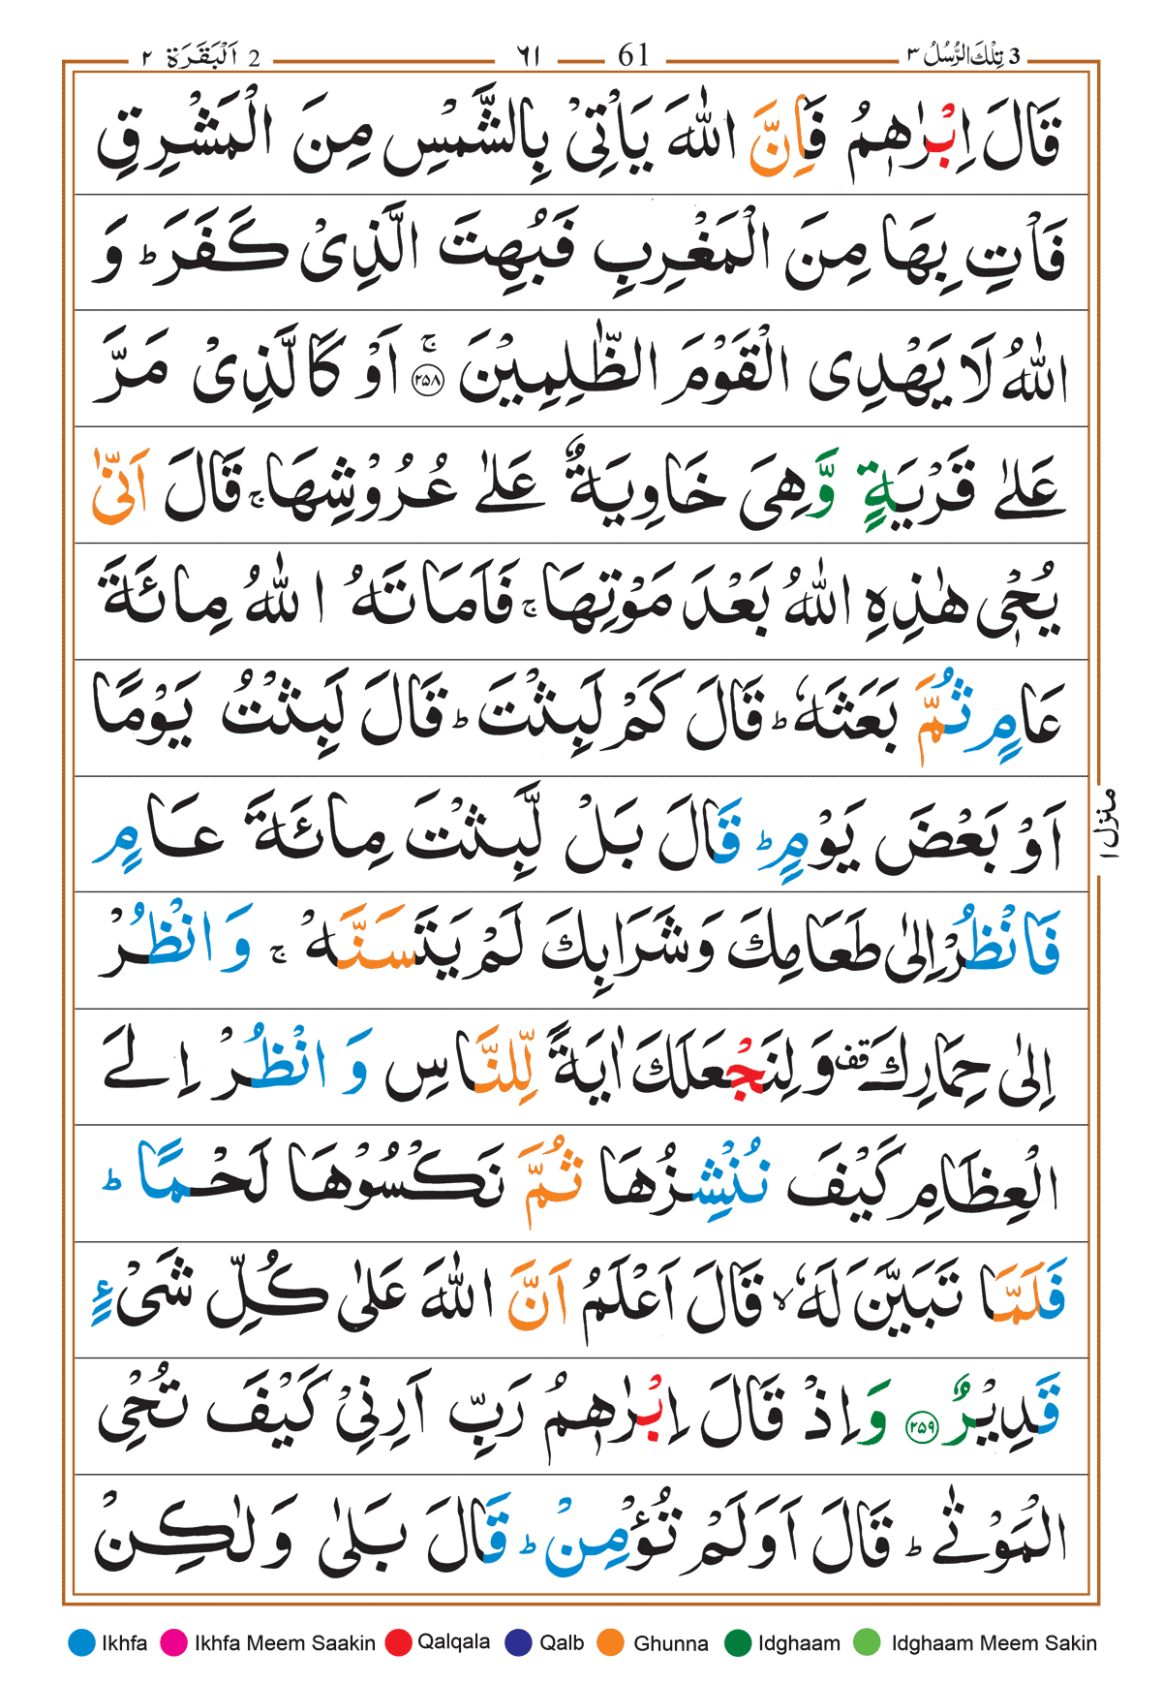 3 تِلْكَ الرُّسُلُ ٣ 61 ٦١ 2 اَلْبَقَرَة ٢
قَالَ اِبْرٰهٖمُ فَاِنَّ اللّٰهَ يَاْتِىْ بِالشَّمْسِ مِنَ الْمَشْرِقِ
فَاْتِ بِهَا مِنَ الْمَغْرِبِ فَبُهِتَ الَّذِىْ كَفَرَ ؕ وَ
اللّٰهُ لَا يَهْدِى الْقَوْمَ الظّٰلِمِيْنَ ۚ‏ ﴿۲۵۸﴾ اَوْ كَالَّذِىْ مَرَّ
عَلٰى قَرْيَةٍ وَّهِىَ خَاوِيَةٌ عَلٰى عُرُوْشِهَا ۚ قَالَ اَنّٰى
يُحْىٖ هٰذِهِ اللّٰهُ بَعْدَ مَوْتِهَا ۚ فَاَمَاتَهُ اللّٰهُ مِائَةَ
عَامٍ ثُمَّ بَعَثَهٗ ؕ قَالَ كَمْ لَبِثْتَ ؕ قَالَ لَبِثْتُ يَوْمًا
اَوْ بَعْضَ يَوْمٍ ؕ قَالَ بَلْ لَّبِثْتَ مِائَةَ عَامٍ
فَانْظُرْ اِلٰى طَعَامِكَ وَشَرَابِكَ لَمْ يَتَسَنَّهْ ۚ وَانْظُرْ
اِلٰى حِمَارِكَ قف وَلِنَجْعَلَكَ اٰيَةً لِّلنَّاسِ وَانْظُرْ اِلَى
الْعِظَامِ كَيْفَ نُنْشِزُهَا ثُمَّ نَكْسُوْهَا لَحْمًا ؕ
فَلَمَّا تَبَيَّنَ لَهٗ ۙ قَالَ اَعْلَمُ اَنَّ اللّٰهَ عَلٰى كُلِّ شَىْءٍ
قَدِيْرٌ ﴿۲۵۹﴾ وَاِذْ قَالَ اِبْرٰهٖمُ رَبِّ اَرِنِىْ كَيْفَ تُحْىِ
الْمَوْتٰى ؕ قَالَ اَوَلَمْ تُؤْمِنْ ؕ قَالَ بَلٰى وَلٰكِنْ
منزل ١
Ikhfa Ikhfa Meem Saakin Qalqala Qalb Ghunna Idghaam Idghaam Meem Sakin